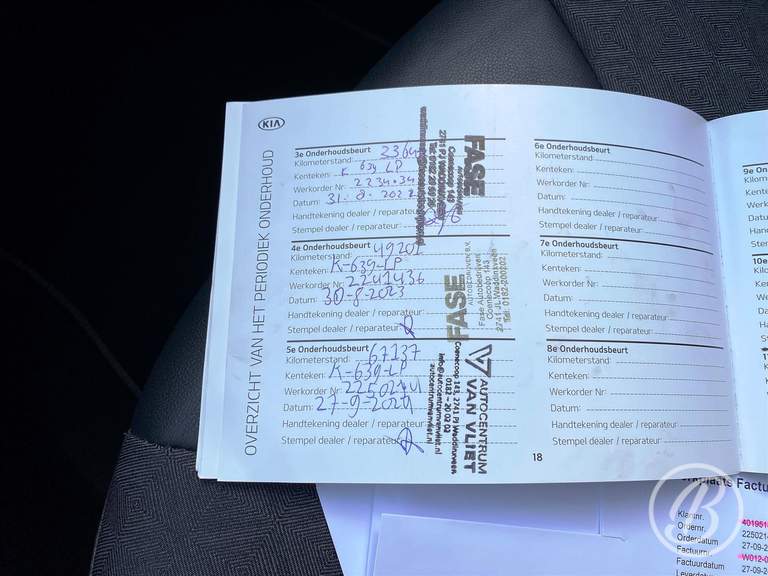 KIA
OVERZICHT VAN HET PERIODIEK ONDERHOUD
3e Onderhoudsbeurt
Kilometerstand:
Kenteken: K 639 LP
Werkorder Nr:
Datum: 31-8-2022
Handtekening dealer / reparateur:
Stempel dealer / reparateur:
FASE
Coenecoop 143
4e Onderhoudsbeurt
Kilometerstand: 49201
Kenteken: K-639-LP
Werkorder Nr: 2241436
Datum: 30-8-2023
Handtekening dealer / reparateur:
Stempel dealer / reparateur:
FASE
AUTOBEDRIJVEN B.V.
Fase Autobedrijven
Coenecoop 143
2741 PJ Waddinxveen
Tel: 0182-200202
5e Onderhoudsbeurt
Kilometerstand: 67137
Kenteken: K-639-LP
Werkorder Nr:
Datum: 27-9-2024
Handtekening dealer / reparateur:
Stempel dealer / reparateur:
AUTOCENTRUM
VAN VLIET
Coenecoop 143, 2741 PJ Waddinxveen
0182 - 20 02 02
info@autocentrumvanvliet.nl
autocentrumvanvliet.nl
6e Onderhoudsbeurt
Kilometerstand:
Kenteken:
Werkorder Nr:
Datum:
Handtekening dealer / reparateur:
Stempel dealer / reparateur:
7e Onderhoudsbeurt
Kilometerstand:
Kenteken:
Werkorder Nr:
Datum:
Handtekening dealer / reparateur:
Stempel dealer / reparateur:
8e Onderhoudsbeurt
Kilometerstand:
Kenteken:
Werkorder Nr:
Datum:
Handtekening dealer / reparateur:
Stempel dealer / reparateur:
18
9e On
Kilom
Kente
Werk
Datu
Hand
Stem
10e
Kil
Ke
We
Da
Ha
St
B
rkplaats Factu
Klantnr. 4019510
Ordernr. 225021
Orderdatum 27-09-2
Factuurnr. W012-0
Factuurdatum 27-09-2